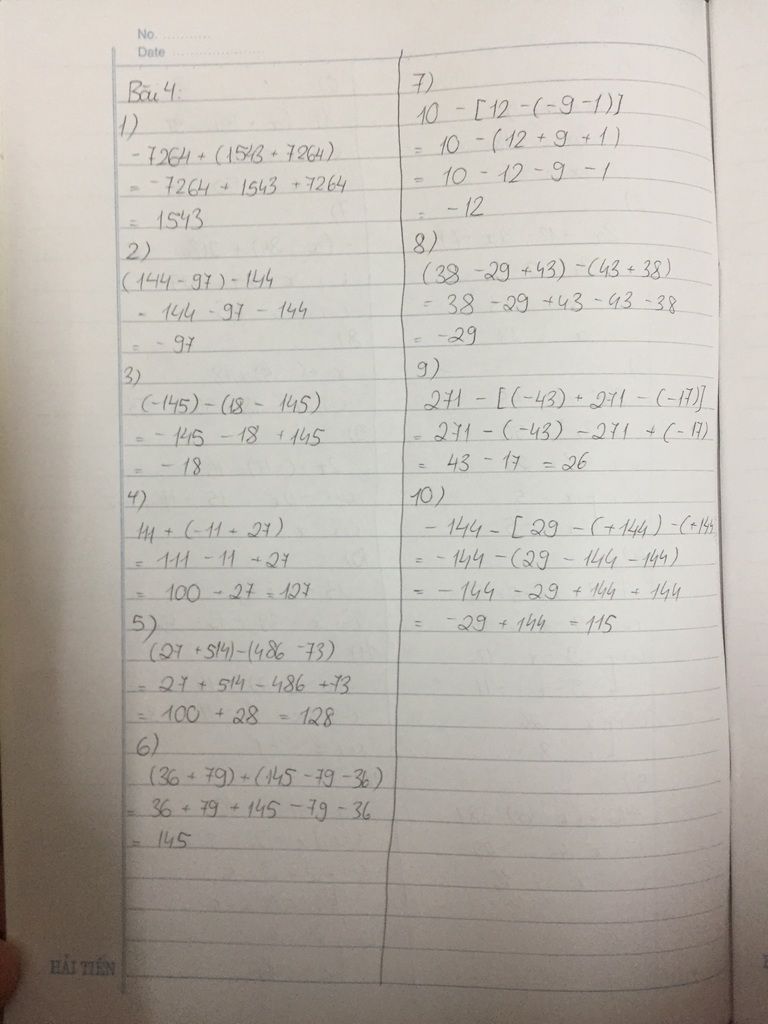 No. ...........
Date ......................
Bài 4:
1)
-7264 + (1543 + 7264)
= -7264 + 1543 + 7264
= 1543
2)
(144 - 97) - 144
= 144 - 97 - 144
= - 97
3)
(-145) - (18 - 145)
= - 145 - 18 + 145
= - 18
4)
111 + (-11 + 27)
= 111 - 11 + 27
= 100 + 27 = 127
5)
(27 + 514) - (486 - 73)
= 27 + 514 - 486 + 73
= 100 + 28 = 128
6)
(36 + 79) + (145 - 79 - 36)
= 36 + 79 + 145 - 79 - 36
= 145
7)
10 - [12 - (-9 - 1)]
= 10 - (12 + 9 + 1)
= 10 - 12 - 9 - 1
= -12
8)
(38 - 29 + 43) - (43 + 38)
= 38 - 29 + 43 - 43 - 38
= -29
9)
271 - [(-43) + 271 - (-17)]
= 271 - (-43) - 271 + (-17)
= 43 - 17 = 26
10)
- 144 - [29 - (+144) - (+144
= - 144 - (29 - 144 - 144)
= - 144 - 29 + 144 + 144
= -29 + 144 = 115
HẢI TIẾN